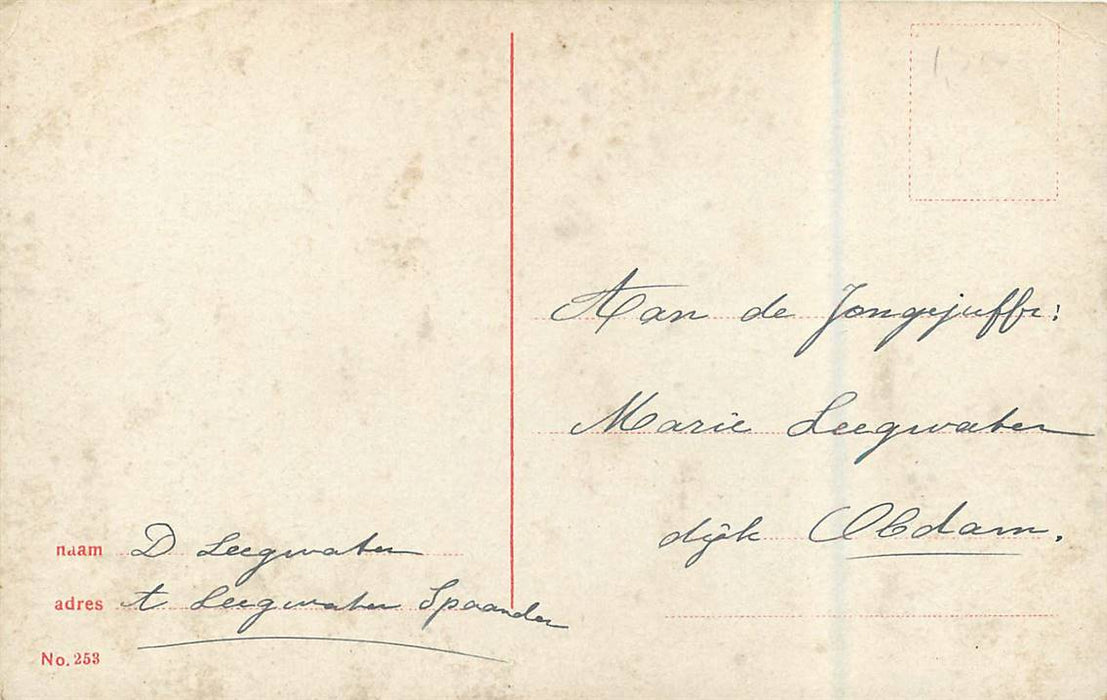 Aan de Jongejuffr:
Marie Leegwater
dijk Obdam.
naam D Leegwater
adres t Leegwater Spaander
No. 253